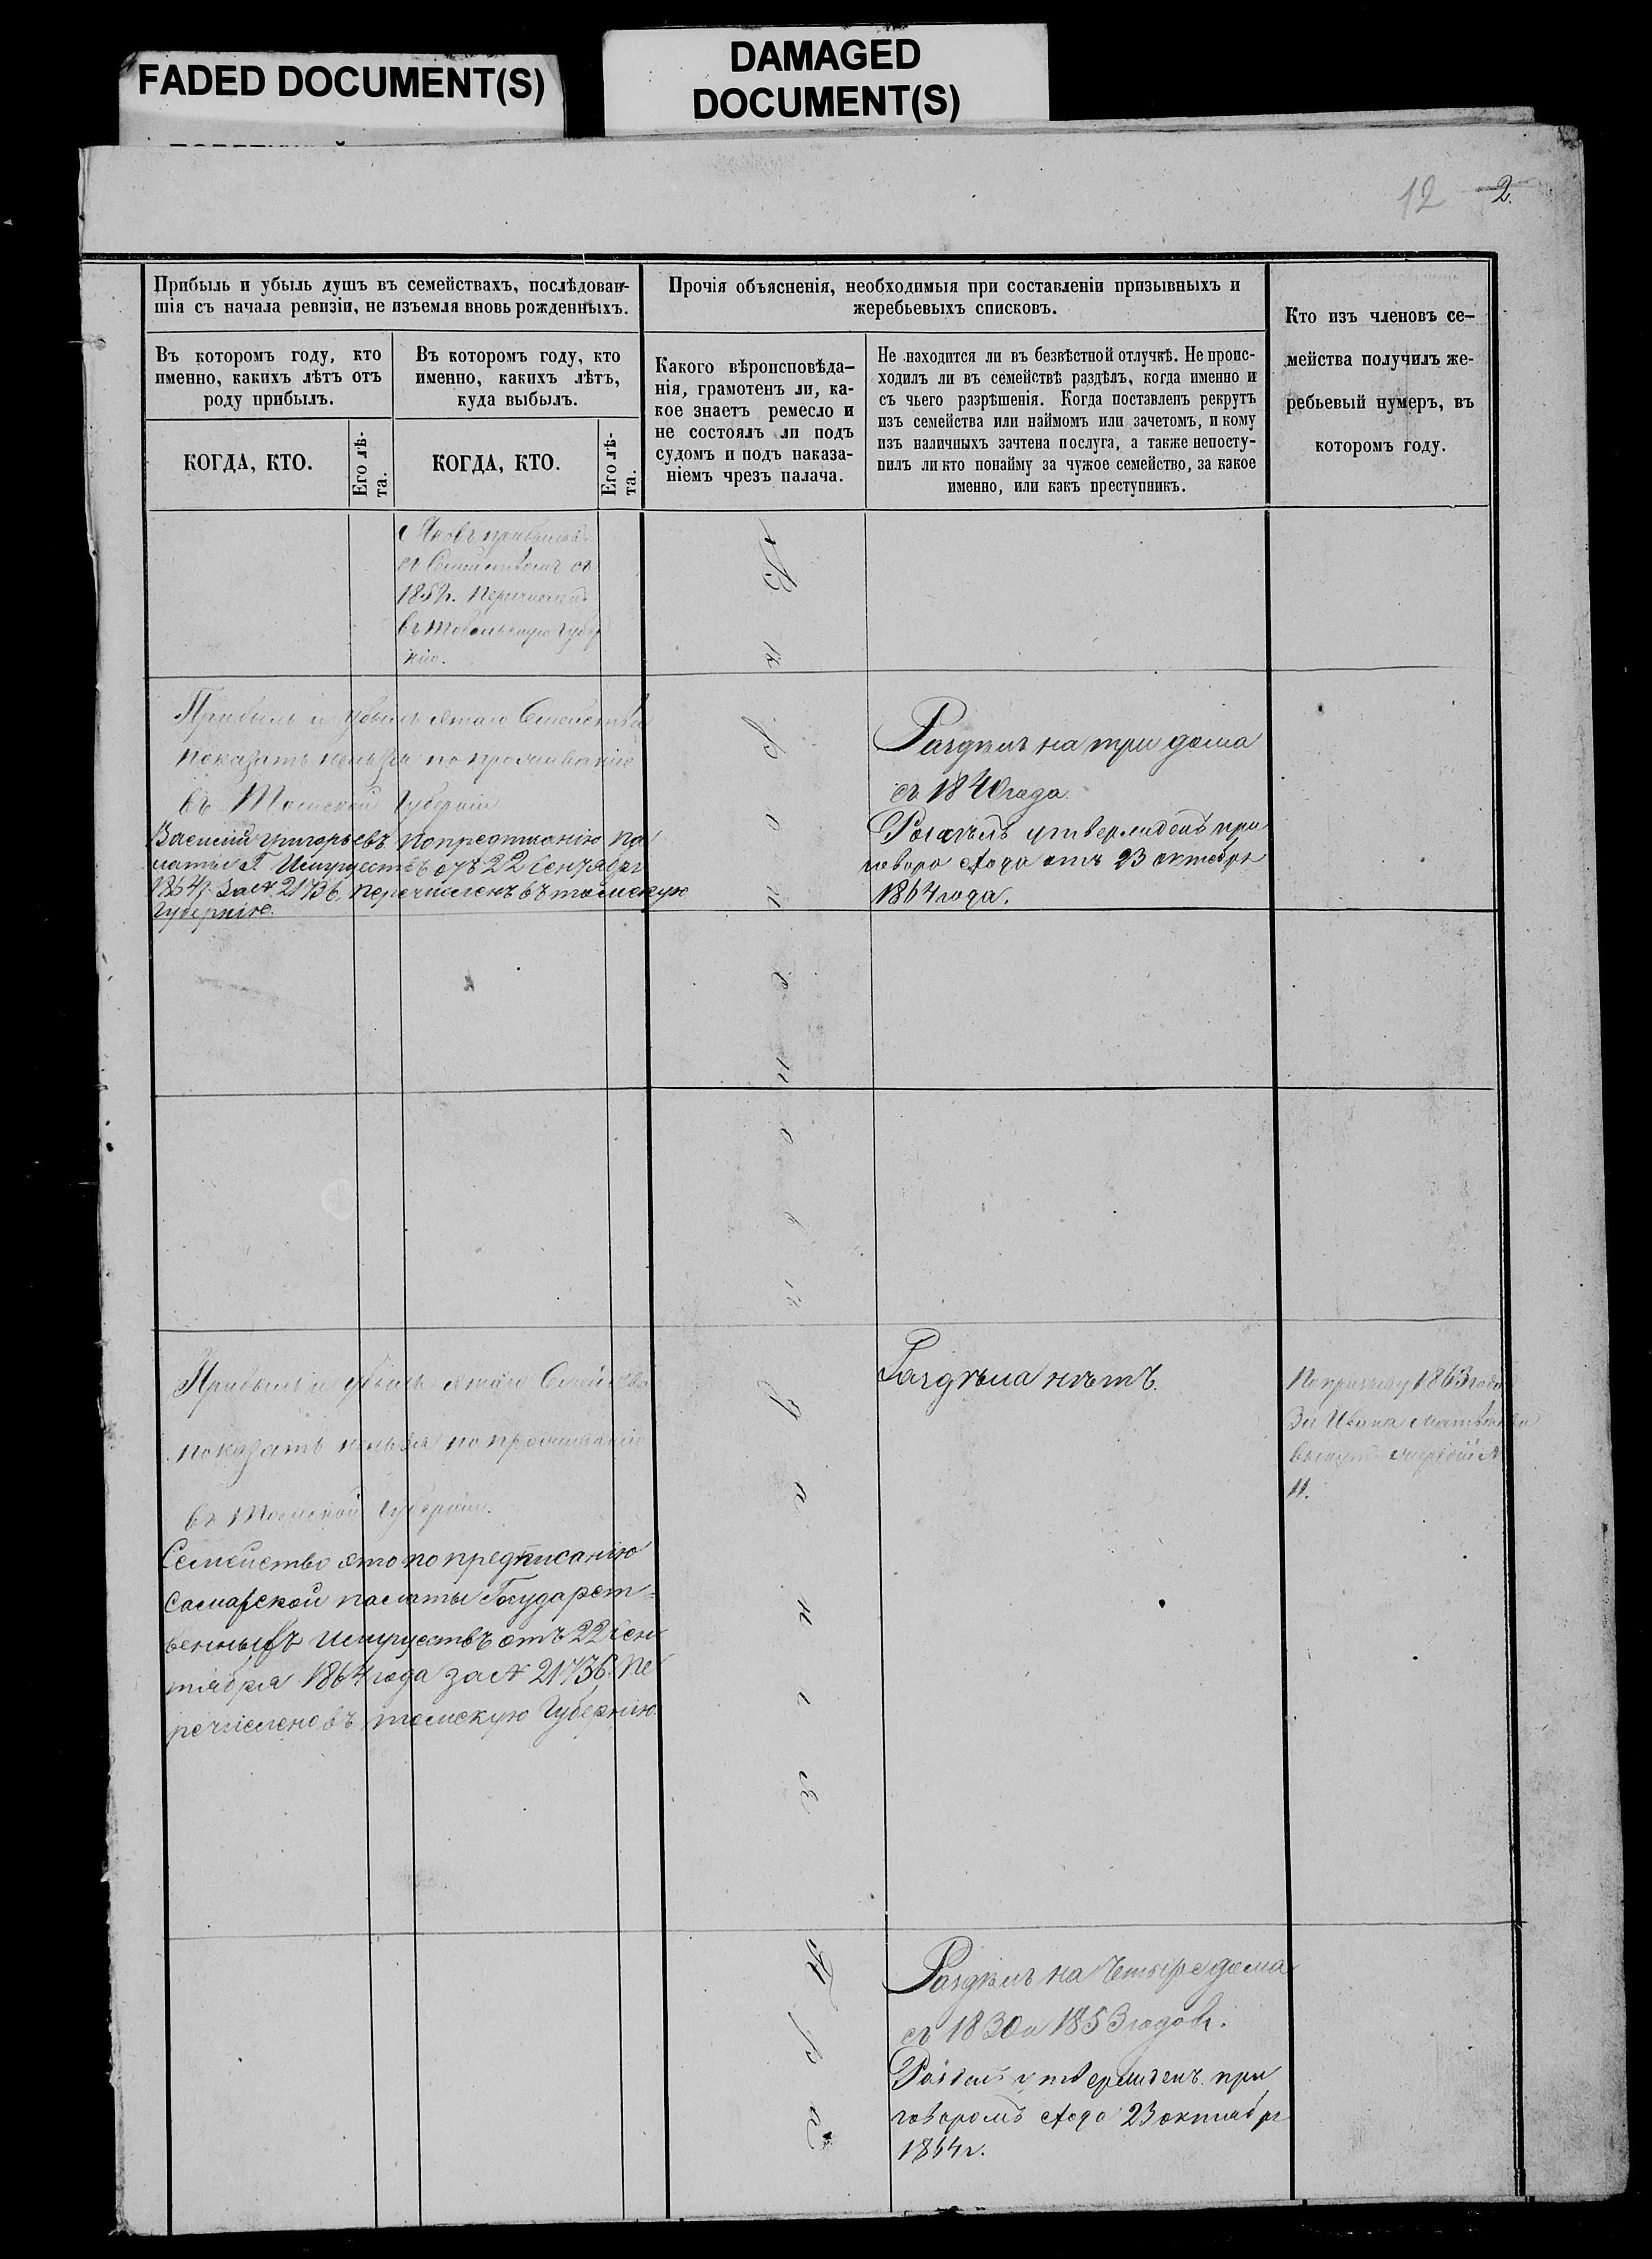 FADED DOCUMENT(S)
DAMAGED
DOCUMENT(S)
12 2.
Прибыль и убыль душъ въ семействахъ, послѣдовав-
шія съ начала ревизіи, не изъемля вновь рожденныхъ.
Въ которомъ году, кто
именно, какихъ лѣтъ отъ
роду прибылъ.
Въ которомъ году, кто
именно, какихъ лѣтъ,
куда выбылъ.
КОГДА, КТО.
Его лѣ-
та.
КОГДА, КТО.
Его лѣ-
та.
Прочія объясненія, необходимыя при составленіи призывныхъ и
жеребьевыхъ списковъ.
Какого вѣроисповѣда-
нія, грамотенъ ли, ка-
кое знаетъ ремесло и
не состоялъ ли подъ
судомъ и подъ наказа-
ніемъ чрезъ палача.
Не находится ли въ безвѣстной отлучкѣ. Не проис-
ходилъ ли въ семействѣ раздѣлъ, когда именно и
съ чьего разрѣшенія. Когда поставленъ рекрутъ
изъ семейства или наймомъ или зачетомъ, и кому
изъ наличныхъ зачтена послуга, а также непосту-
пилъ ли кто понайму за чужое семейство, за какое
именно, или какъ преступникъ.
Кто изъ членовъ се-
мейства получилъ же-
ребьевый нумеръ, въ
которомъ году.
Яковъ
съ Семействомъ съ
185 г. Перечисленъ
въ Губер
нію.
Прибыль и убыль етаго Семейства
показать нельзя по проживанію
въ Томской Губерніи
Василій Григорьевъ попредписанію Па
латы Г. Имуществъ отъ 22 Сентября
1864 г. за № 21736. перечисленъ въ томскую
Губернію.
Раздѣлъ на три дома
съ 1840 года.
Раздѣлъ утвержденъ при
говора схода отъ 23 октября
1864 года.
Прибыль и убыль етаго Семейства
показать нельзя по проживанію
въ Томской Губерніи.
Семейство ето по предписанію
Самарской палаты Государст-
венныхъ имуществъ отъ 22 Сен
тября 1864 года за № 21736. Пе
речислено въ томскую Губернію.
Раздѣла нѣтъ.
По призыву 1863 года
За Ивана Матвѣева
вынутъ №
11.
Раздѣлъ на Четыре дома
съ 1830 и 1853 годовъ.
Раздѣлъ утвержденъ при
говоромъ схода 23 октября
1864 г.